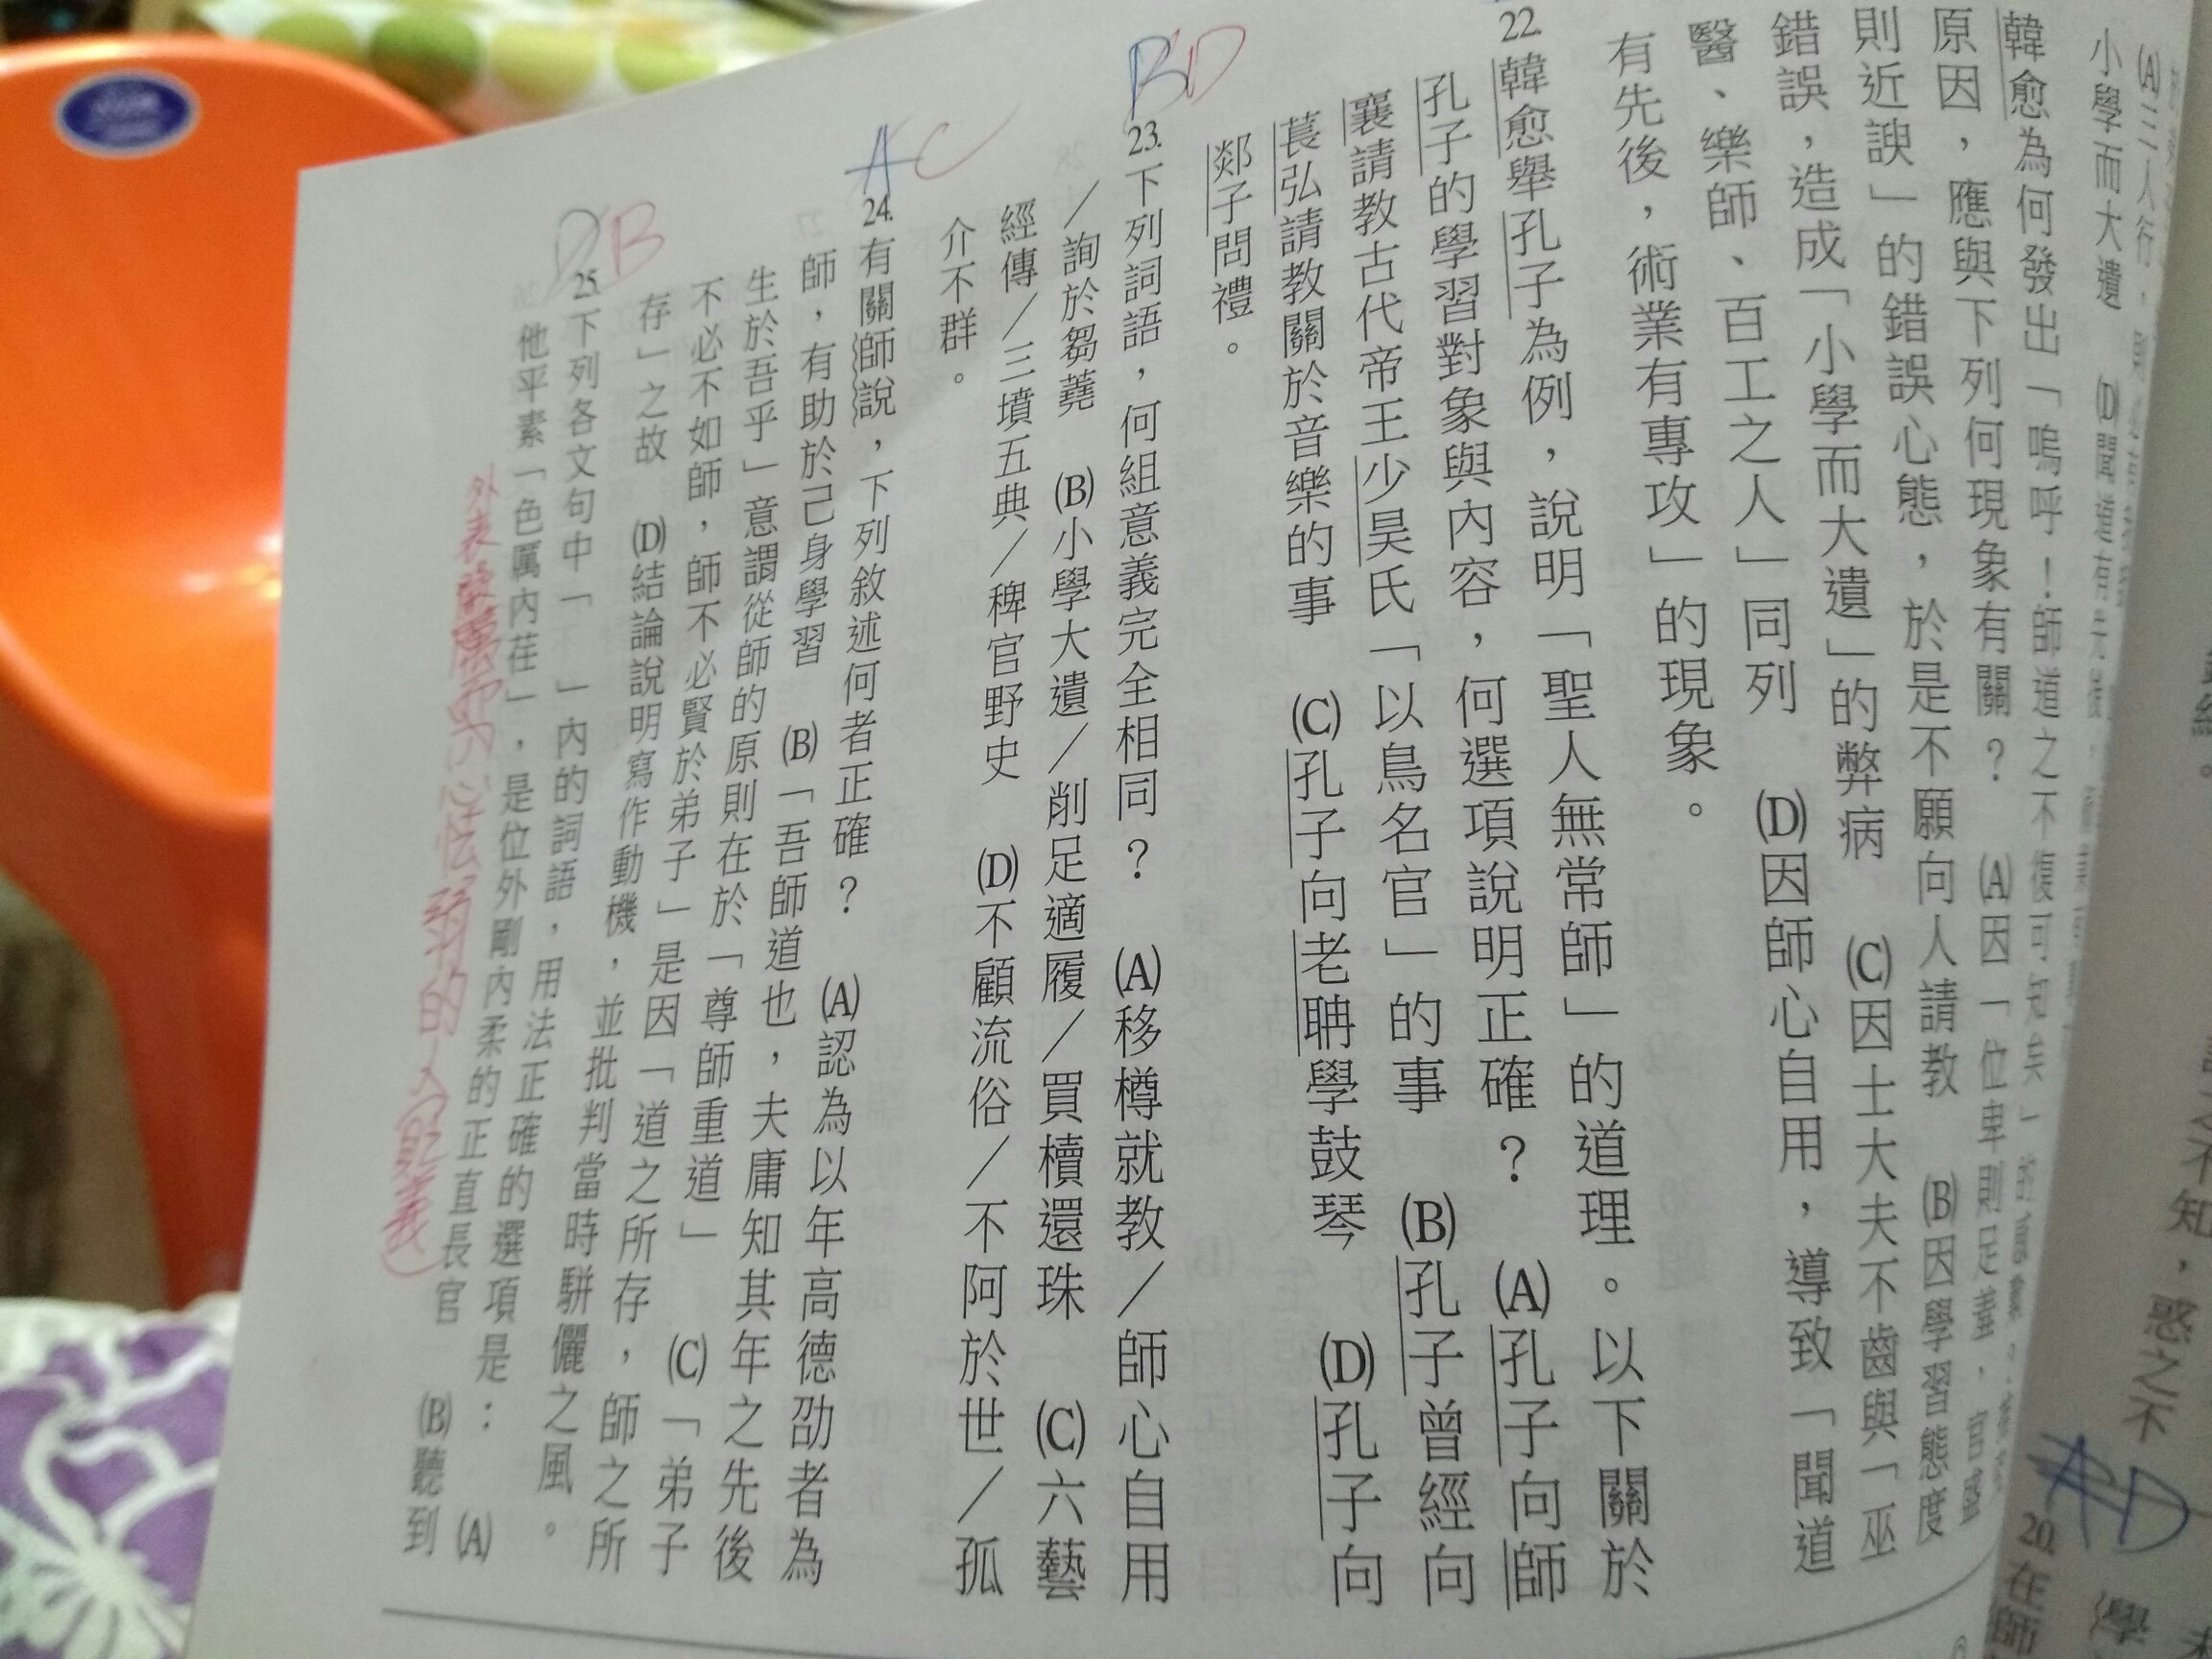 小學而大遺　(D)聞道有先後，
韓愈為何發出「嗚呼！師道之不復可知矣」的感嘆。
原因，應與下列何現象有關？　(A)因「位卑則足羞，官盛
則近諛」的錯誤心態，於是不願向人請教　(B)因學習態度
錯誤，造成「小學而大遺」的弊病　(C)因士大夫不齒與「巫
醫、樂師、百工之人」同列　(D)因師心自用，導致「聞道
有先後，術業有專攻」的現象。
22.韓愈舉孔子為例，說明「聖人無常師」的道理。以下關於
孔子的學習對象與內容，何選項說明正確？　(A)孔子向師
襄請教古代帝王少昊氏「以鳥名官」的事　(B)孔子曾經向
萇弘請教關於音樂的事　(C)孔子向老聃學鼓琴　(D)孔子向
郯子問禮。
BD
23.下列詞語，何組意義完全相同？　(A)移樽就教／師心自用
／詢於芻蕘　(B)小學大遺／削足適履／買櫝還珠　(C)六藝
經傳／三墳五典／稗官野史　(D)不顧流俗／不阿於世／孤
介不群。
AC
24.有關師說，下列敘述何者正確？　(A)認為以年高德劭者為
師，有助於己身學習　(B)「吾師道也，夫庸知其年之先後
生於吾乎」意謂從師的原則在於「尊師重道」　(C)「弟子
不必不如師，師不必賢於弟子」是因「道之所存，師之所
存」之故　(D)結論說明寫作動機，並批判當時駢儷之風。
DB
25.下列各文句中「　」內的詞語，用法正確的選項是：　(A)
他平素「色厲內荏」，是位外剛內柔的正直長官　(B)聽到
外表嚴厲而內心怯弱的人(貶義)
AD
20.在師
學
惑之不